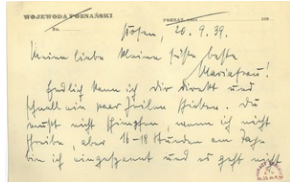 WOJEWODA POZNAŃSKI
Posen, 20.9.39.
Meine liebe kleine süße beste
Mariafrau!
Endlich kann ich dir direkt und
schnell ein paar Zeilen schicken. Du
mußt nicht schimpfen, wenn ich nicht
schreibe, aber 16-18 Stunden am Tage
bin ich eingespannt und es geht nicht